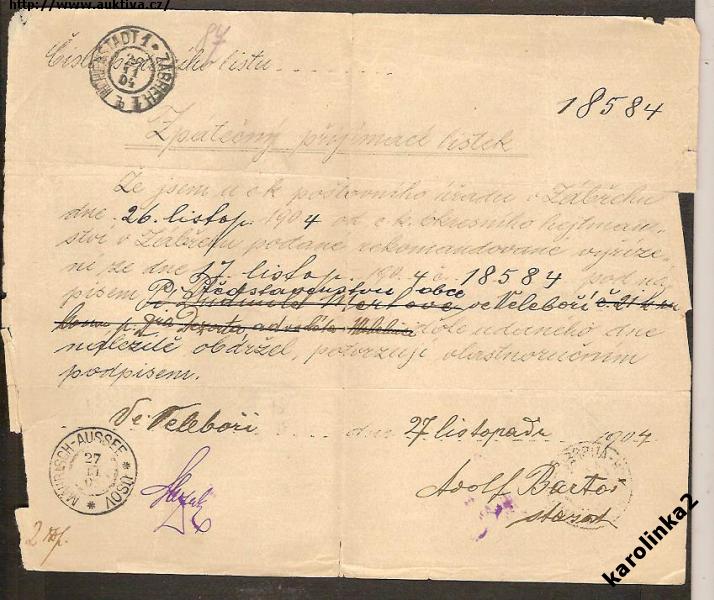 http://www.auktiva.cz/
87
Číslo poštovního listu
HOHENSTADT 1 * ZÁBŘEH 1
26
11
04
18584
Zpáteční přijímací lístek
Že jsem u c k poštovního úřadu v Zábřehu
dne 26. listop. 1904 od c. k. okresního hejtman-
ství v Zábřehu podané rekomandované vyříze-
ní ze dne 17. listop. 1904 č. 18584 pod ná-
pisem Představenstvu obce ve Veleboři
dole udaného dne
náležitě obdržel, potvrzuji vlastnoručním
podpisem.
Ve Veleboři dne 27 listopadu 1904
MÄHRISCH-AUSSEE * ÚSOV *
27
11
Adolf Bartoš
starost
karolinka2